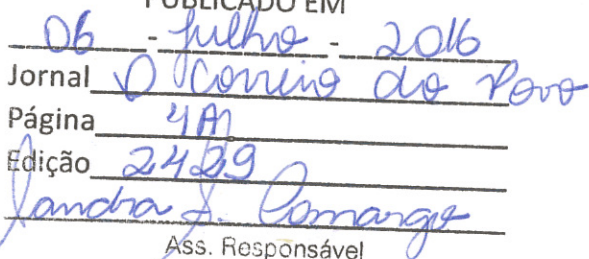 PUBLICADO EM
06 - Julho - 2016
Jornal O Correio do Povo
Página 4A
Edição 2429
Sandra S. Camargo
Ass. Responsável